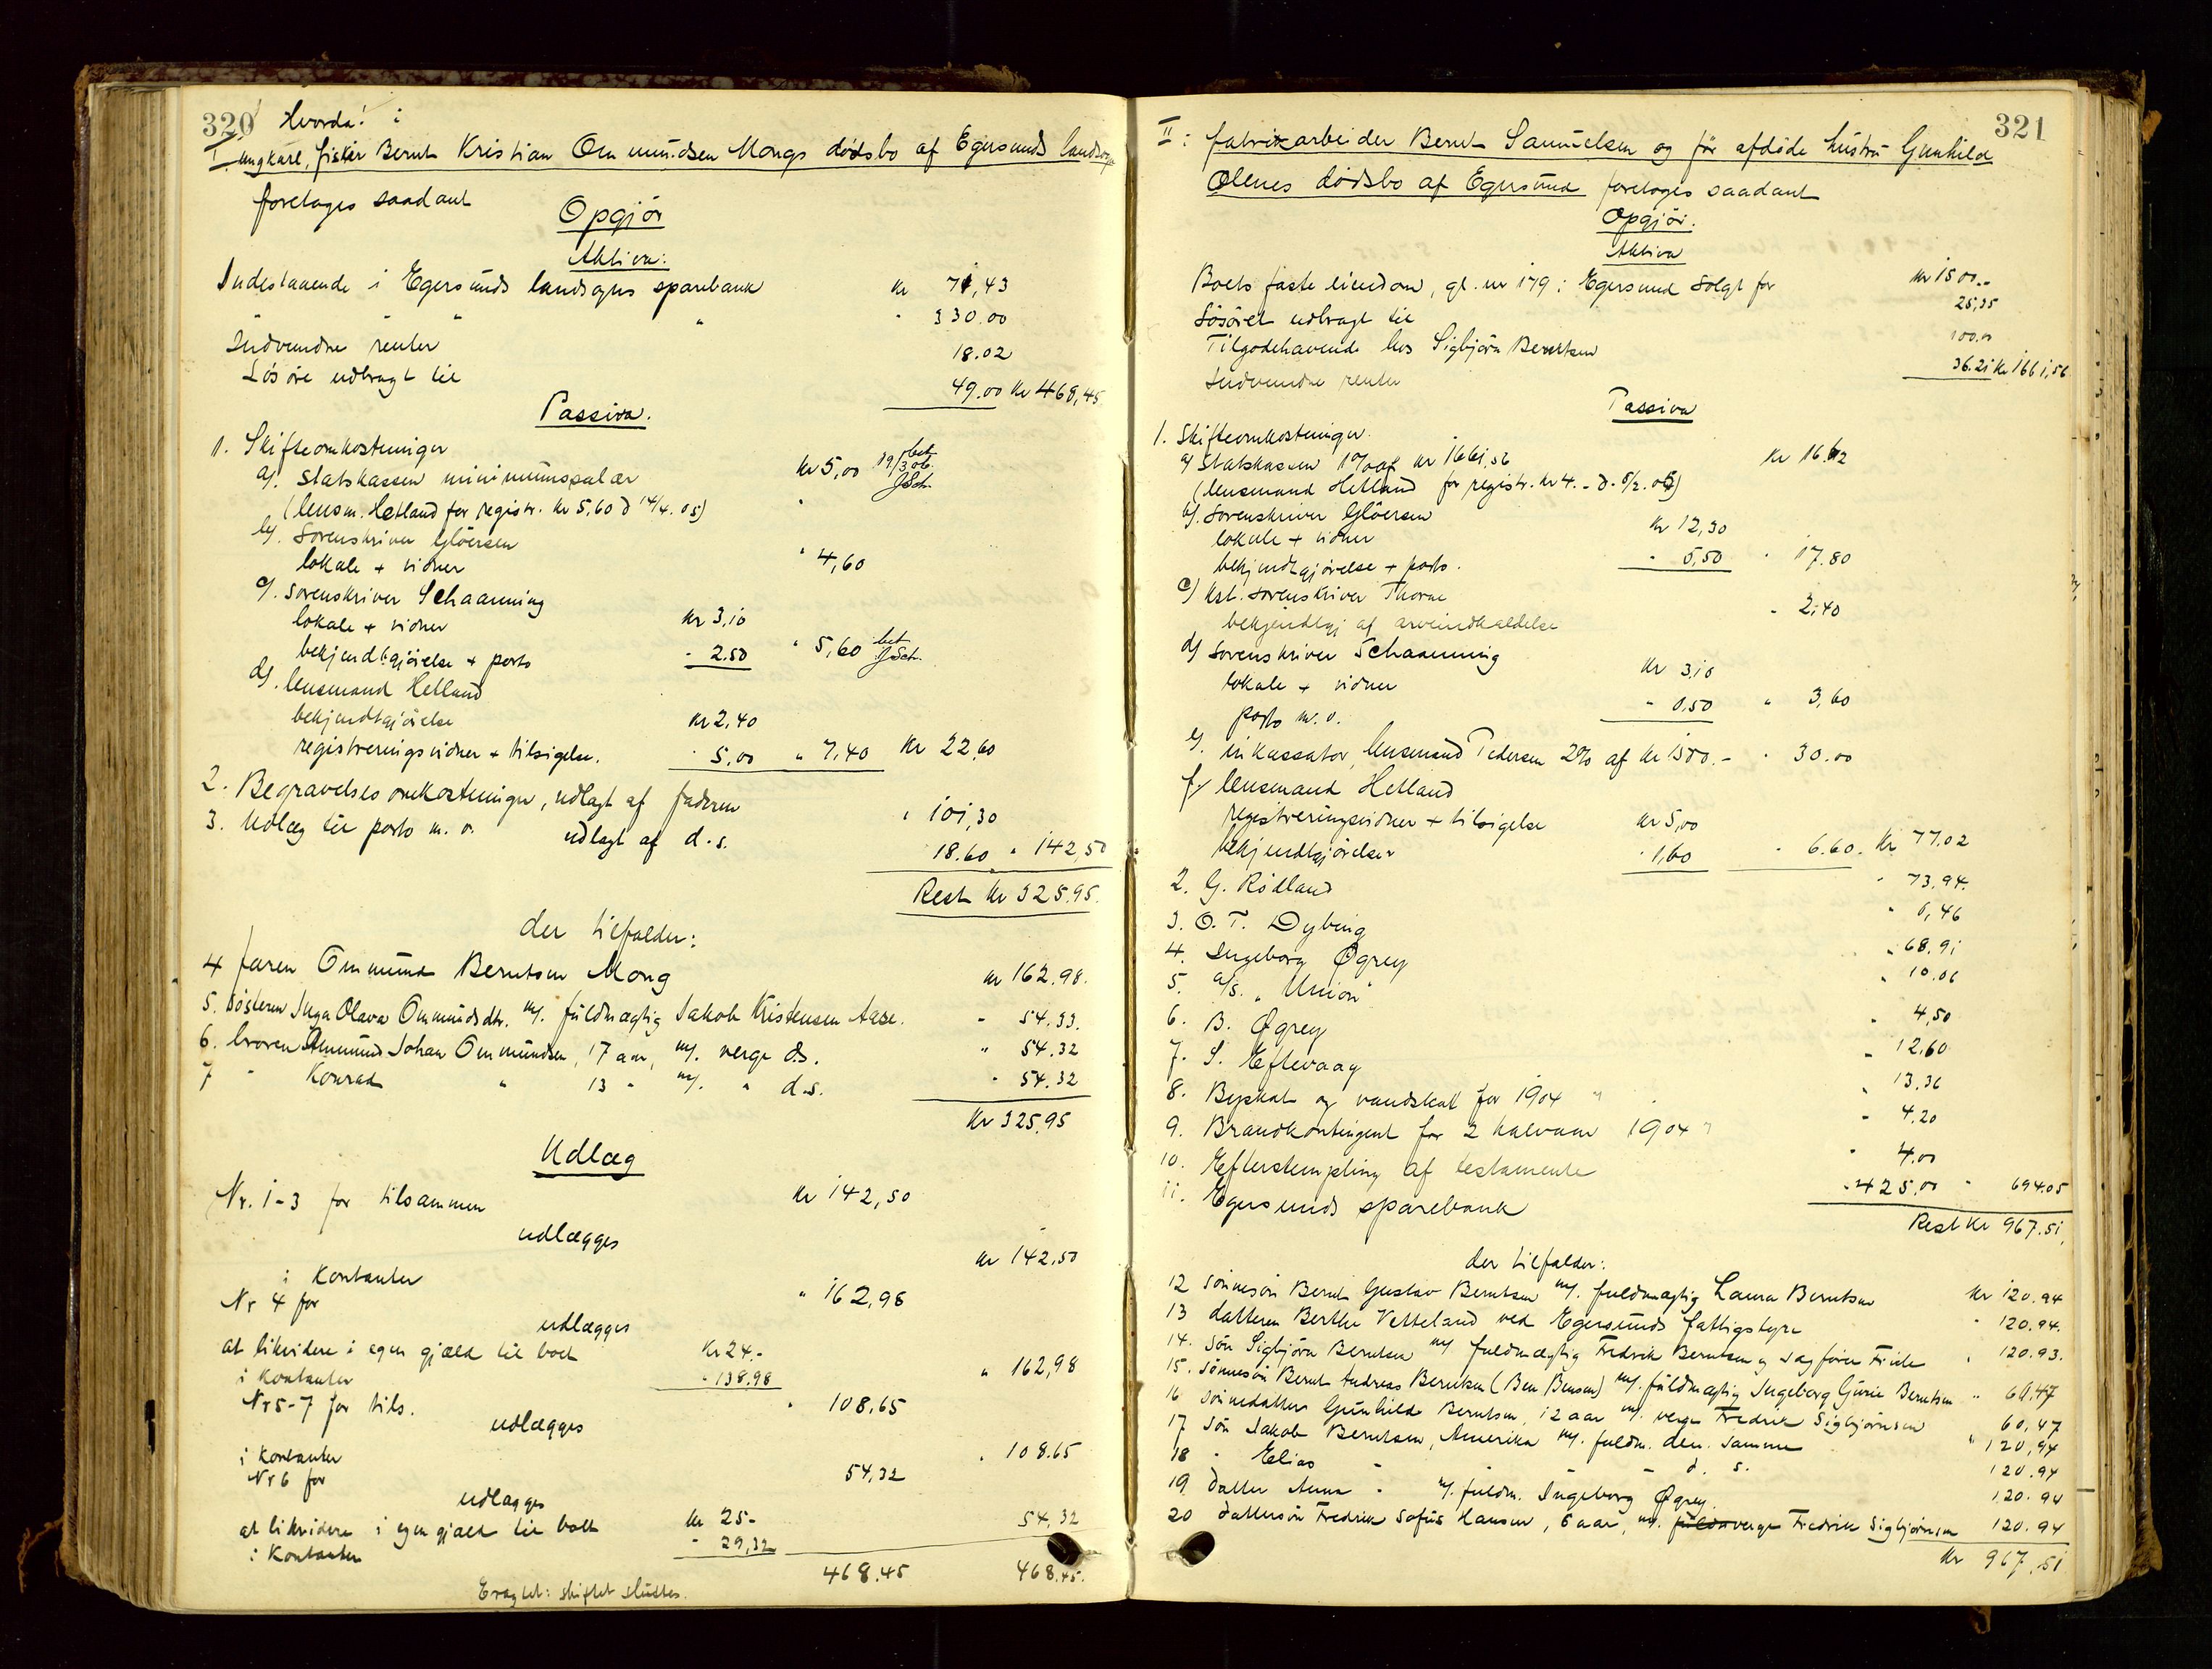 320 Hvorda! i
I ungkarl, fisker Bernt Kristian Ommundsen Mongs dødsbo af Egersunds landsogn
foretages saadant
Opgjör
Aktiva:
Indestaaende i Egersunds landsogns sparebank kr 71,43
" " " 330.00
Indvundne renter 18.02
Lösöre udbragt til 49.00 kr 468,45
Passiva.
1. Skifteomkostninger
a). Statskassen minimumssalær kr 5,00 bet 19/3 06. JSch.
(lensm. Hetland for registr. kr 5,60 d 14/4. 05)
b). Sorenskriver Glöersen
lokale + vidner " 4,60
c). Sorenskriver Schaanning
lokale + vidner kr 3,10
bekjendtgjörelse + porto - 2.50 " 5,60 bet JSch.
d). lensmand Hetland
bekjendtgjörelse kr 2,40
registreringsvidner + tilsigelse. - 5,00 " 7,40 kr 22,60
2. Begravelsesomkostninger, udlagt af faderen " 101,30
3. Udlæg til porto m. v. udlagt af d. s. 18.60 " 142,50
Rest kr 325,95.
der tilfalder:
4 faren Ommund Berntsen Mong kr 162.98.
5. Søsteren Inga Olava Ommundsdtr. m/. fuldmægtig Jakob Kristensen Aase. - 54.33.
6. broren Ommund Johan Ommundsen, 17 aar, m/. verge d.s. " 54.32
7 " Konrad " 13 " m/. " d.s. - 54.32
kr 325,95
Udlæg
Nr. 1-3 for tilsammen kr 142,50
udlægges
i kontanter kr 142.50
Nr 4 for " 162,98
udlægges
at likvidere i egen gjæld til boet kr 24.-
i kontanter - 138.98 " 162,98
Nr 5-7 for tils. " 108,65
udlægges
i kontanter " 108.65
Nr 6 for 54,32
udlægges
at likvidere i egen gjæld til boet kr 25-
i kontanter - 29,32 54,32
468.45 468.45.
Eragtet: skiftet sluttes.
321
II: fabrikarbeider Bernt Samuelsen og før afdøde hustru Gunhild
Olenes dødsbo af Egersund foretages saadant
Opgjör.
Aktiva
Boets faste eiendom, gl. nr 179 i Egersund solgt for kr 1500.-
Lösöret udbragt til 25,35
Tilgodehavende hos Sigbjörn Berntsen 100.00
Indvundne renter 36.21 kr 1661,56
Passiva
1. Skifteomkostninger.
a) Statskassen 1% af kr 1661,56 kr 16.62
(lensmand Hetland for registr. kr 4.- d. 8/2. 05)
b). Sorenskriver Glöersen
lokale + vidner kr 12,30
bekjendtgjörelse + porto. - 5,50 - 17.80
c) kst. sorenskriver Thorne
bekjendtgj af arveindkaldelse - 2,40
d) Sorenskriver Schaanning
lokale + vidner kr 3,10
porto m. v. " 0,50 " 3,60
e). inkassator, lensmand Pedersen 2% af kr 1500.- - 30.00
f) lensmand Hetland
registreringsvidner + tilsigelse kr 5,00
bekjendtgjörelser - 1,60 - 6.60. kr 77.02
2. G. Rödland - 73,94.
3. O. T. Dybing " 6,46
4. Ingeborg Øgrey - 68.91
5. A/S. "Union" " 10.06
6. B. Øgrey - 4,50
7. S. Eftevaag - 12,60
8. Byskat og vandskat for 1904 " 13.36
9. Brandkontingent for 2 halvaar 1904 - 4.20
10. Efterstempling af testamente - 4.00
11. Egersunds sparebank - 425,00 - 694.05
Rest kr 967.51
der tilfalder:
12 sönnesön Bernt Gustav Berntsen m/. fuldmægtig Laura Berntsen kr 120.94
13 datteren Berthe Vetteland ved Egersunds fattigstyre " 120.94.
14. Sön Sigbjörn Berntsen m/ fuldmægtig Fredrik Berntsen og sagförer Friele " 120.93.
15. Sönnesön Bernt Andreas Berntsen (Ben Benson) m/. fuldmægtig Ingeborg Gurie Berntsen " 60.47
16 sönnedatter Gunhilde Berntsen, 12 aar m/. verge Fredrik Sigbjörnsen 60,47
17 Sön Jakob Berntsen, Amerika m/. fuldm. den samme " 120,94
18 " Elias - - d. s. 120.94
19 Datter Anna - m/. fuldm. Ingeborg Øgrey. 120.94
20 Dattersön Fredrik Sofus Hansen, 6 aar, m/. verge Fredrik Sigbjörnsen 120.94
kr 967,51